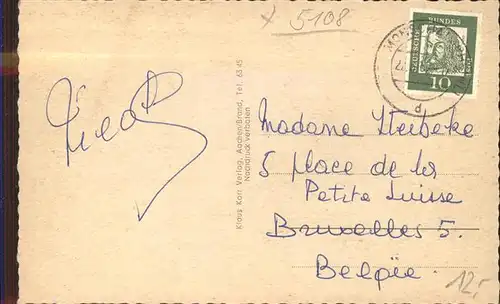 5108
DEUTSCHE BUNDESPOST
10
MONSCHAU
d
Klaus Karr Verlag, Aachen/Brand, Tel. 6345
Nachdruck verboten
Madame Sterbeke
5 place de la
Petite Suisse
Bruxelles 5.
Belgïe.
12,-